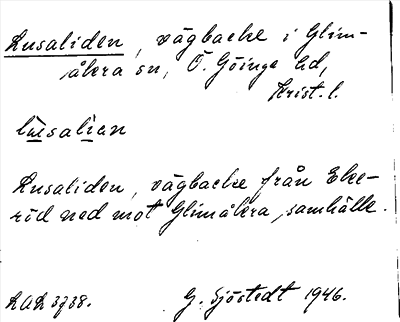 Lusaliden, vägbacke i Glim-
åkra sn, Ö. Göinge hd,
Krist. l.
lusalian
Lusaliden, vägbacke från Eke-
röd ned mot Glimåkra samhälle.
LAL 3738.
G. Sjöstedt 1946.